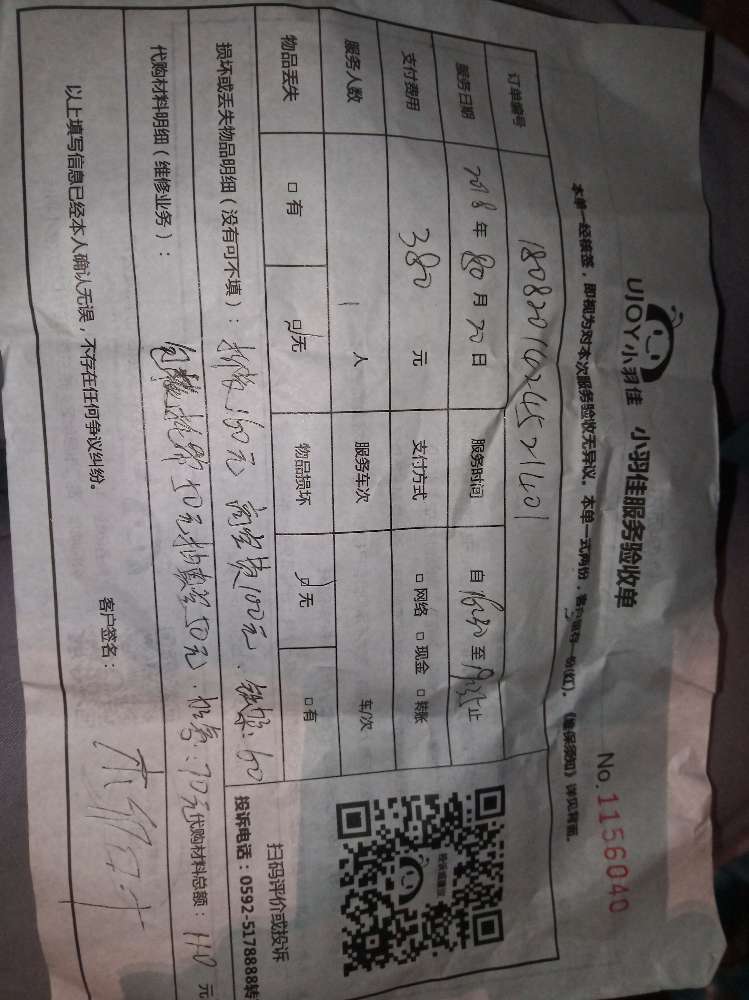 UJOY小羽佳 小羽佳服务验收单
No.1156040
本单一经核签，即视为对本次服务验收无异议。本单一式两份，客户留存一份(红)。《维保须知》详见背面。
订单编号 1808201424521401
服务日期 2018年 80月 20日 服务时间 自 至 止
支付费用 380 元 支付方式 □网络 □现金 □转账
服务人数 1 人 服务车次 车/次
物品丢失 □有 □无 物品损坏 □无 □有
扫码评价或投诉
投诉电话：0592-5178888转
损坏或丢失物品明细（没有可不填）：拆装160元 高空费100元、铁架:60
代购材料明细（维修业务）： 50元抽真空50元. 70元 代购材料总额：110 元
以上填写信息已经本人确认无误，不存在任何争议纠纷。
客户签名：